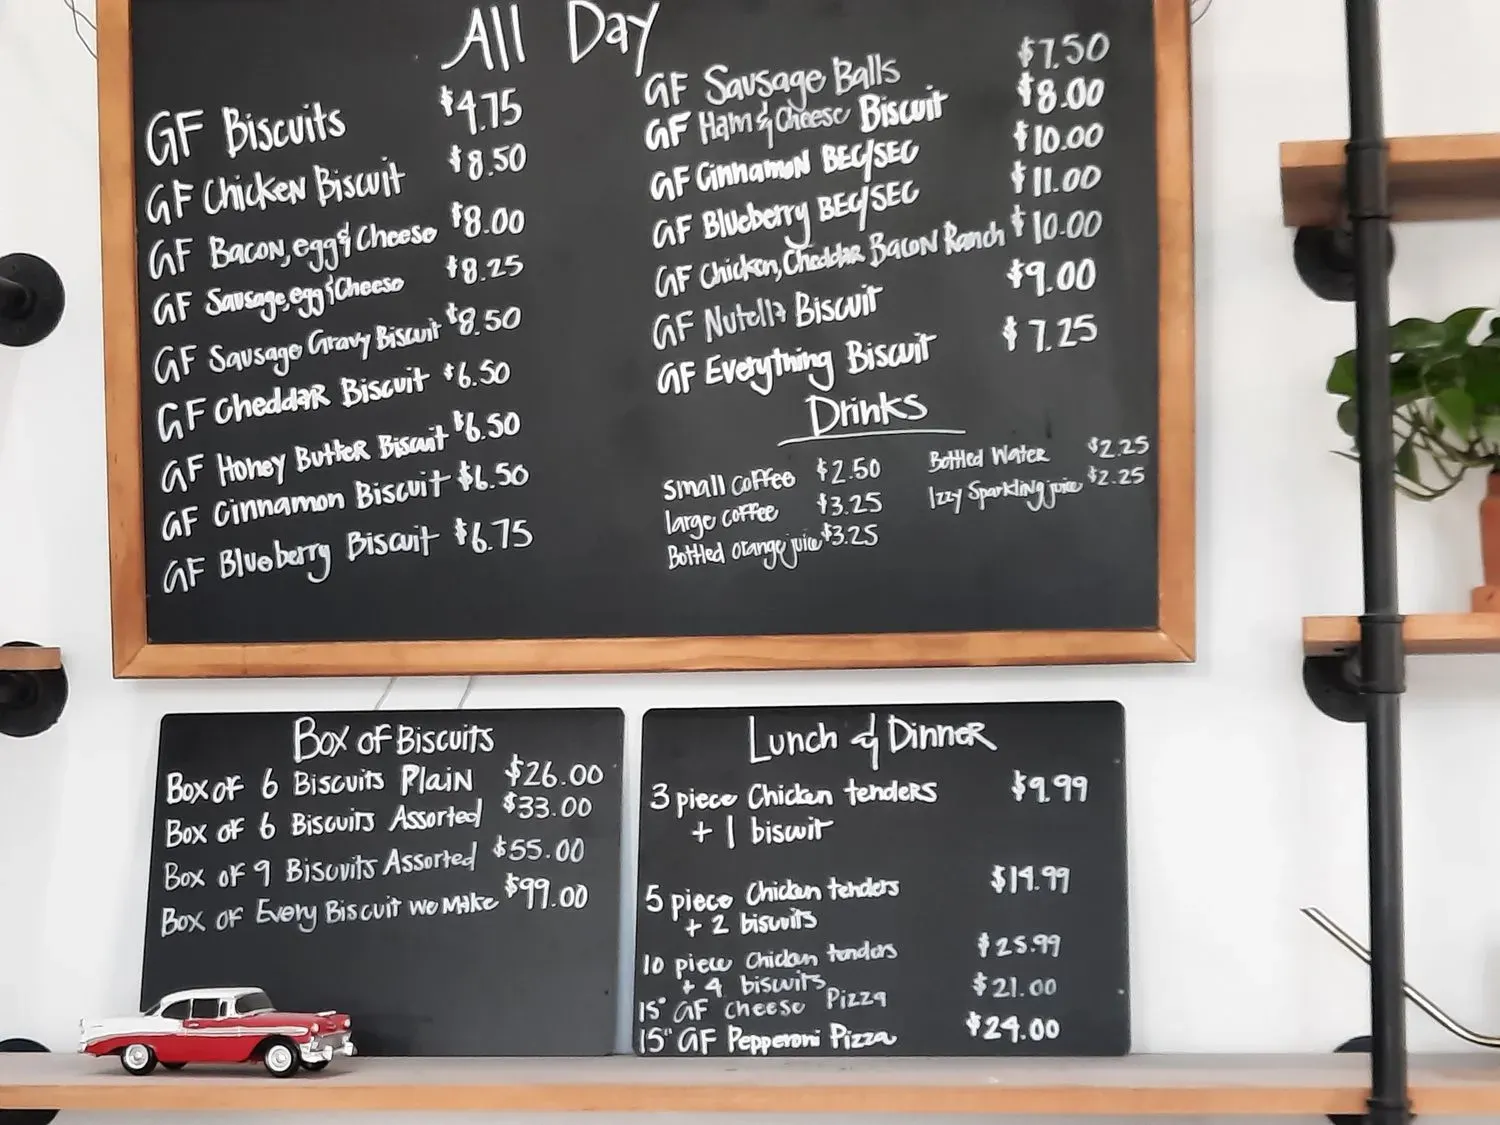 All Day
GF Biscuits $4.75
GF Chicken Biscuit $8.50
GF Bacon, egg & Cheese $8.00
GF Sausage, egg & Cheese $8.25
GF Sausage Gravy Biscuit $8.50
GF Cheddar Biscuit $6.50
GF Honey Butter Biscuit $6.50
GF Cinnamon Biscuit $6.50
GF Blueberry Biscuit $6.75
GF Sausage Balls $7.50
GF Ham & Cheese Biscuit $8.00
GF Cinnamon BEC/SEC $10.00
GF Blueberry BEC/SEC $11.00
GF Chicken, Cheddar Bacon Ranch $10.00
GF Nutella Biscuit $9.00
GF Everything Biscuit $7.25
Drinks
small coffee $2.50
large coffee $3.25
Bottled orange juice $3.25
Bottled Water $2.25
Izzy Sparkling juice $2.25
Box of Biscuits
Box of 6 Biscuits Plain $26.00
Box of 6 Biscuits Assorted $33.00
Box of 9 Biscuits Assorted $55.00
Box of Every Biscuit we make $99.00
Lunch & Dinner
3 piece Chicken tenders $9.99
+ 1 biscuit
5 piece Chicken tenders $14.99
+ 2 biscuits
10 piece Chicken tenders $25.99
+ 4 biscuits
15" GF Cheese Pizza $21.00
15" GF Pepperoni Pizza $24.00